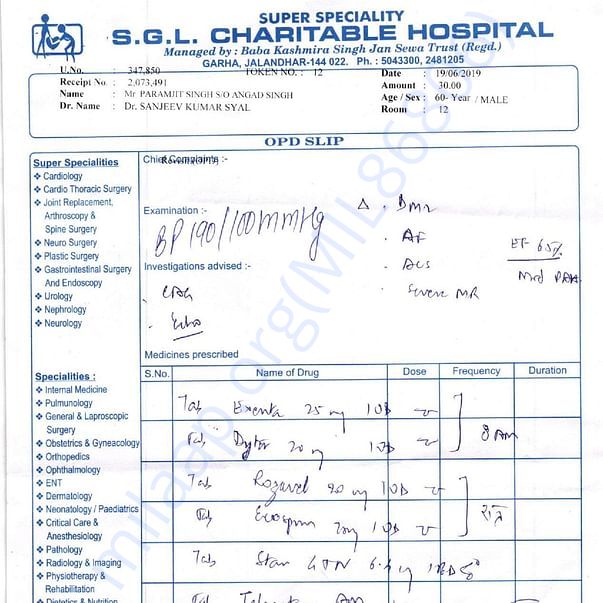 SUPER SPECIALITY
S.G.L. CHARITABLE HOSPITAL
Managed by : Baba Kashmira Singh Jan Sewa Trust (Regd.)
GARHA, JALANDHAR-144 022. Ph. : 5043300, 2481205
U.No. : 347,850 TOKEN NO. : 12 Date : 19/06/2019
Receipt No. : 2,073,491 Amount : 30.00
Name : Mr PARAMJIT SINGH S/O ANGAD SINGH Age / Sex : 60- Year / MALE
Dr. Name : Dr. SANJEEV KUMAR SYAL Room : 12
OPD SLIP
Super Specialities
Cardiology
Cardio Thoracic Surgery
Joint Replacement,
Arthroscopy &
Spine Surgery
Neuro Surgery
Plastic Surgery
Gastrointestinal Surgery
And Endoscopy
Urology
Nephrology
Neurology
Chief Complaints :-
Examination :-
BP 190/100mmHg
Δ . DM2
. AF
. ACS
. Severe MR
EF 65%
Mod PAH
Investigations advised :-
. CAG
. Echo
Medicines prescribed
S.No. Name of Drug Dose Frequency Duration
Tab 25 mg 1OD
Tab Dytor 20 mg 1OD
8 AM
Tab Rozavel 20 mg 1OD
Tab Ecosprin 1OD
Tab GTN
Tab
Specialities :
Internal Medicine
Pulmunology
General & Laproscopic
Surgery
Obstetrics & Gyneacology
Orthopedics
Ophthalmology
ENT
Dermatology
Neonatology / Paediatrics
Critical Care &
Anesthesiology
Pathology
Radiology & Imaging
Physiotherapy &
Rehabilitation
Dietetics & Nutrition
milaap.org(MIL86860)